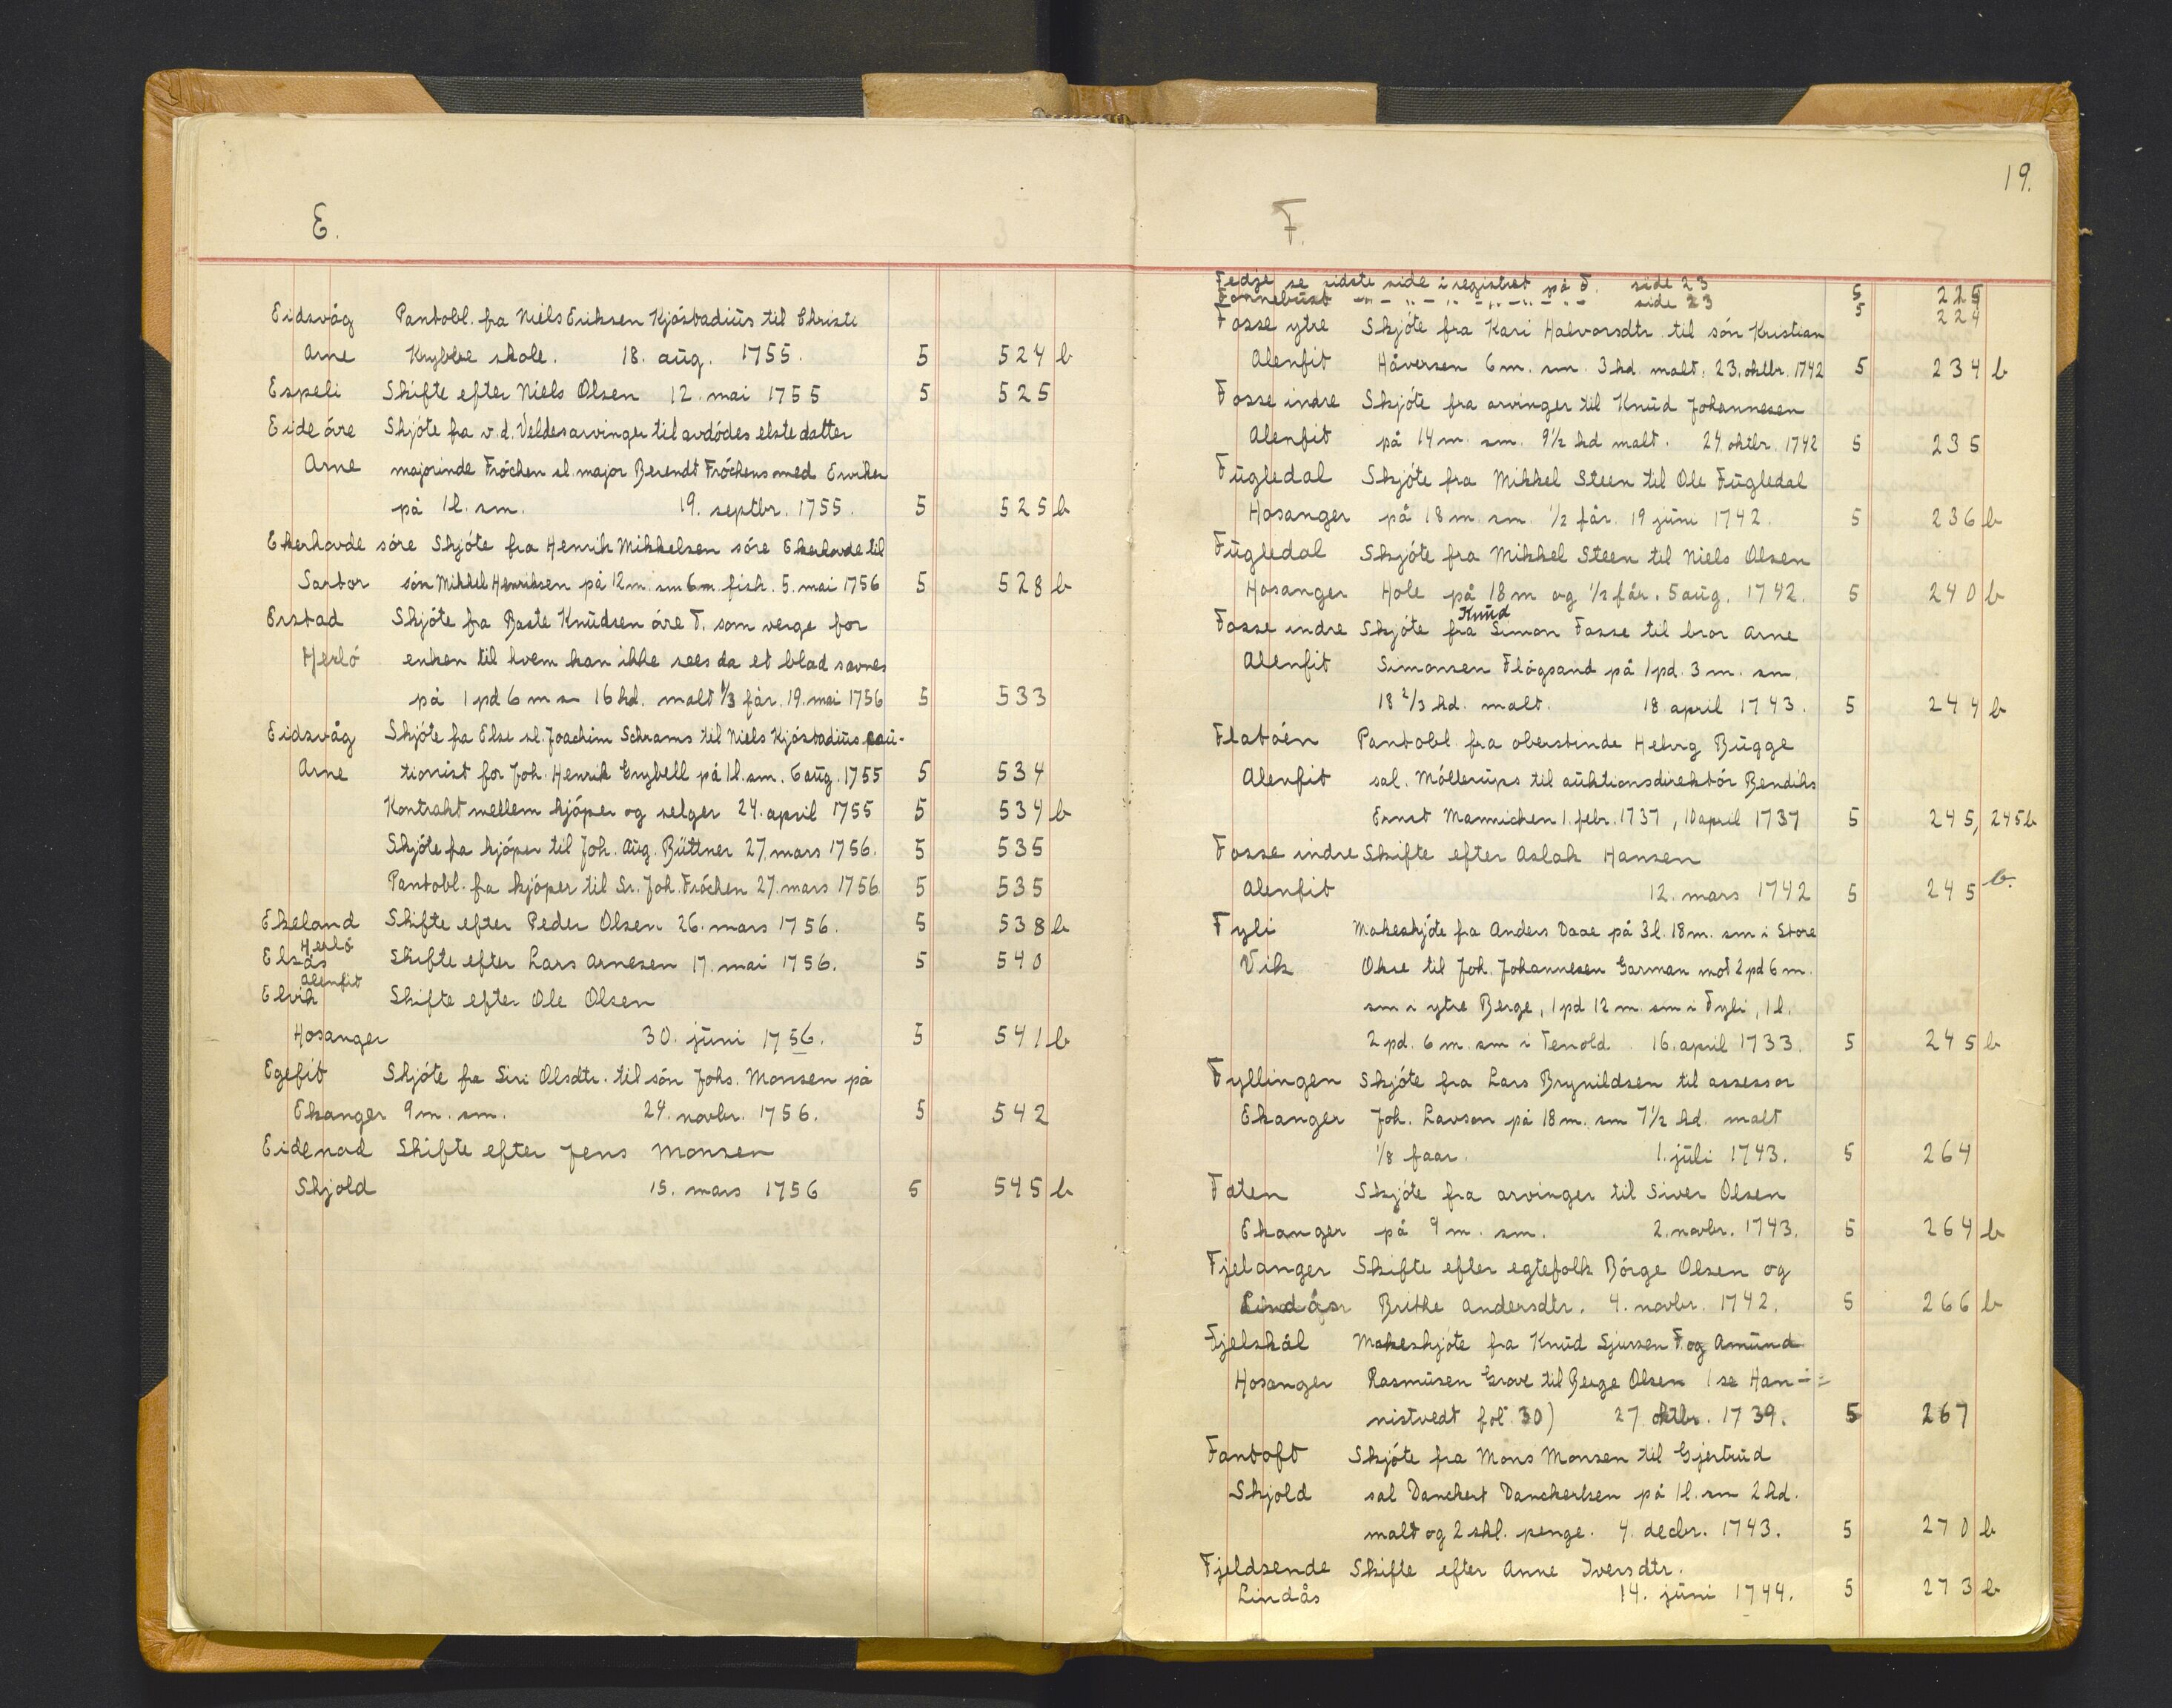 E.
Eidsvåg Pantobl. fra Niels Eriksen Kjóstadiüs til Christi
Arne Krybbe skole. 18. aüg. 1755. 5 524 b
Espeli Skifte efter Niels Olsen 12. mai 1755 5 525
Eide óvre Skjóte fra v.d. Veldes arvinger til avdódes elste datter
Arne majorinde Fróchen sl. major Berendt Fróchens med Erviken
på 1 l. sm. 19. septbr. 1755. 5 525 b
Ekerhovde sóre Skjóte fra Henrik Mikkelsen sóre Ekerhovde til
Sartor són Mikkel Henriksen på 12 m. sm 6 m. fisk. 5. mai 1756 5 528 b
Erstad Skjóte fra Baste Knüdsen óvre T. som verge for
Herló enken til hvem kan ikke sees da et blad savnes
på 1 pd 6 m s 16 hd. malt 1/3 får. 19. mai 1756 5 533
Eidsvåg Skjóte fra Else sl. Joachim Schrams til Niels Kjóstadiüs caü-
Arne tionist for Joh. Henrik Grybell på 1 l. sm. 6 aüg. 1755 5 534
Kontrakt mellem kjóper og selger 24. april 1755 5 534 b
Skjóte fra kjóper til Joh. Aüg. Büttner 27. mars 1756. 5 535
Pantobl. fra kjóper til Sr. Joh. Fróchen 27. mars 1756 5 535
Ekeland Skifte efter Peder Olsen 26. mars 1756. 5 538 b
Herló
Elsås Skifte efter Lars Arnesen 17. mai 1756. 5 540
Alenfit
Elvik Skifte efter Ole Olsen
Hosanger 30. jüni 1756. 5 541 b
Egefit Skjóte fra Siri Olsdtr. til són Johs. Monsen på
Ekanger 9 m. sm. 24. novbr. 1756. 5 542
Eidenod Skifte efter Jens Monsen
Skjold 15. mars 1756 5 545 b
19.
F.
Fedje se sidste side i registret på F. side 23 5 225
Fonnebüst - " - " - " - " - " - - side 23 5 224
Fosse ytre Skjóte fra Kari Halvorsdtr. til són Kristian
Alenfit Håversen 6 m. sm. 3 hd. malt. 23. oktbr. 1742 5 234 b
Fosse indre Skjóte fra arvinger til Knüd Johannesen
Alenfit på 14 m. sm. 9 1/2 hd malt. 24 oktbr. 1742 5 235
Fügledal Skjóte fra Mikkel Steen til Ole Fügledal
Hosanger på 18 m. sm. 1/2 får. 19 jüni 1742. 5 236 b
Fügledal Skjóte fra Mikkel Steen til Niels Olsen
Hosanger Hole på 18 m og 1/2 får. 5 aüg. 1742. 5 240 b
Knüd
Fosse indre Skjóte fra Simon Fosse til bror Arne
Alenfit Simonsen Flågsand på 1 pd. 3 m. sm.
18 2/3 hd. malt. 18. april 1743. 5 244 b
Flatóen Pantobl. fra oberstinde Helvig Bügge
Alenfit sal. Móllerüps til aüktionsdirektór Bendiks
Ernst Mannichen 1. febr. 1737, 10 april 1737 5 245, 245 b
Fosse indre Skifte efter Aslak Hansen
Alenfit 12. mars 1742 5 245 b.
Fyli Makeskjóte fra Anders Daae på 3 l. 18 m. sm i Store
Vik Okse til Joh. Johannesen Garman mot 2 pd 6 m.
sm i ytre Berge, 1 pd 12 m. sm i Fyli, 1 l.
2 pd. 6 m. sm i Tenold. 16. april 1733. 5 245 b
Fyllingen Skjóte fra Lars Brynildsen til assessor
Ekanger Joh. Lavson på 18 m. sm 7 1/2 hd. malt
1/8 faar. 1. jüli 1743. 5 264
Foten Skjóte fra arvinger til Siver Olsen
Ekanger på 9 m. sm. 2. novbr. 1743. 5 264 b
Fjelanger Skifte efter egtefolk Bórge Olsen og
Lindås Brithe Andersdtr. 4. novbr. 1742. 5 266 b
Fjelskål Makeskjóte fra Knüd Sjursen F. og Amünd
Hosanger Rasmüsen Grove til Berge Olsen (se Han-
nistvedt fol. 30) 27. oktbr. 1739. 5 267
Fantoft Skjóte fra Mons Monsen til Gjertrüd
Skjold sal Danckert Danckertsen på 1 l. sm 2 hd.
malt og 2 skl. penge. 4. decbr. 1743. 5 270 b
Fjeldsende Skifte efter Anne Iversdtr.
Lindås 14. jüni 1744. 5 273 b